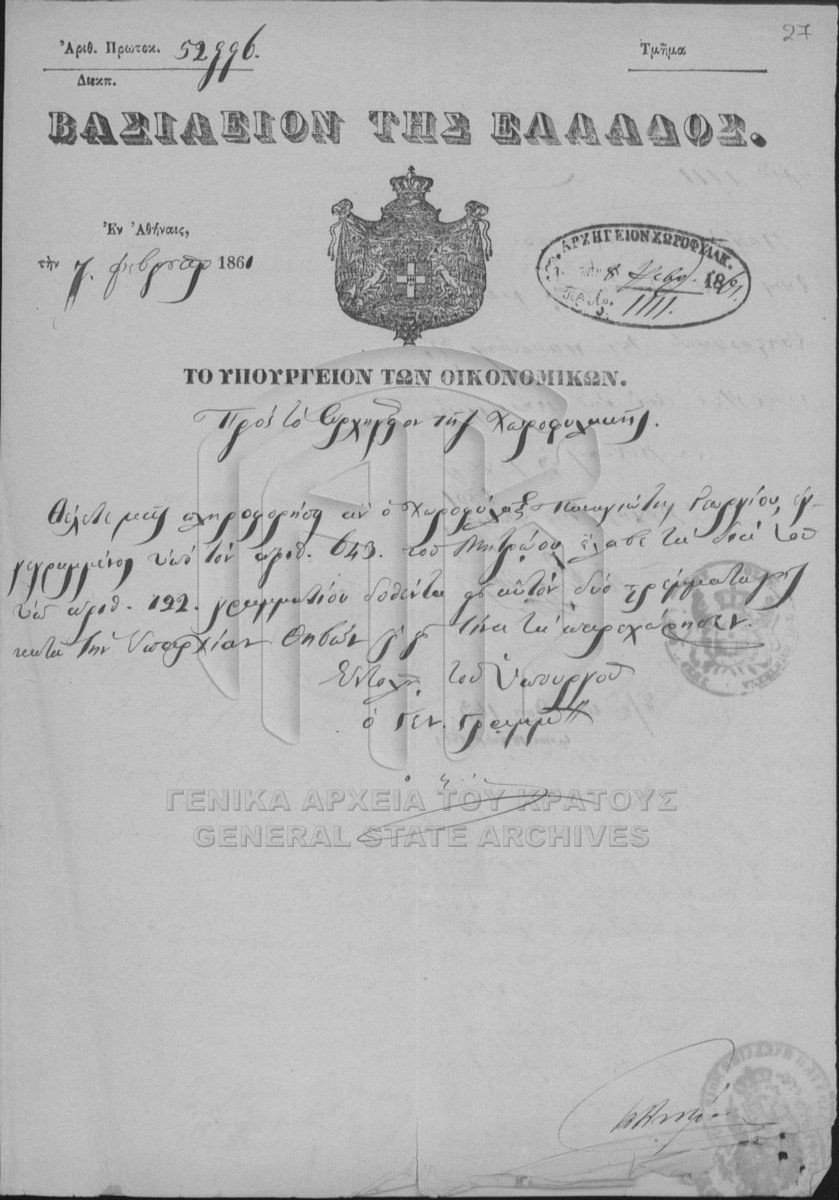 27
Ἀριθ. Πρωτοκ. 52996.
Διεκπ.
Τμῆμα
ΒΑΣΙΛΕΙΟΝ ΤΗΣ ΕΛΛΑΔΟΣ.
Ἐν Ἀθήναις,
τὴν 7 φεβρουαρ 1861
ΑΡΧΗΓΕΙΟΝ ΧΩΡΟΦΥΛΑΚ.
8 Φεβρ. 1861
1111.
ΤΟ ΥΠΟΥΡΓΕΙΟΝ ΤΩΝ ΟΙΚΟΝΟΜΙΚΩΝ.
Πρὸς τὸ Ἀρχηγεῖον τῆς Χωροφυλακῆς.
Θέλετε μᾶς πληροφορήσῃ ἂν ὁ Χωροφύλαξ Παναγιώτης Γεωργίου, ἐγ-
γεγραμμένος ὑπὸ τὸν ἀριθ. 643. τοῦ Μητρώου ἔλαβε τὰ διὰ τοῦ
ὑπ ἀριθ. 122. γραμματίου δοθέντα εἰς αὐτὸν δύο στρέμματα γῆς
κατὰ τὴν Ἐπαρχίαν Θηβῶν ἢ εἰς τίνα τὰ παρεχώρησεν.
Ἐντολῇ τοῦ Ὑπουργοῦ
ὁ Γεν. Γραμμ
ΓΕΝΙΚΑ ΑΡΧΕΙΑ ΤΟΥ ΚΡΑΤΟΥΣ
GENERAL STATE ARCHIVES